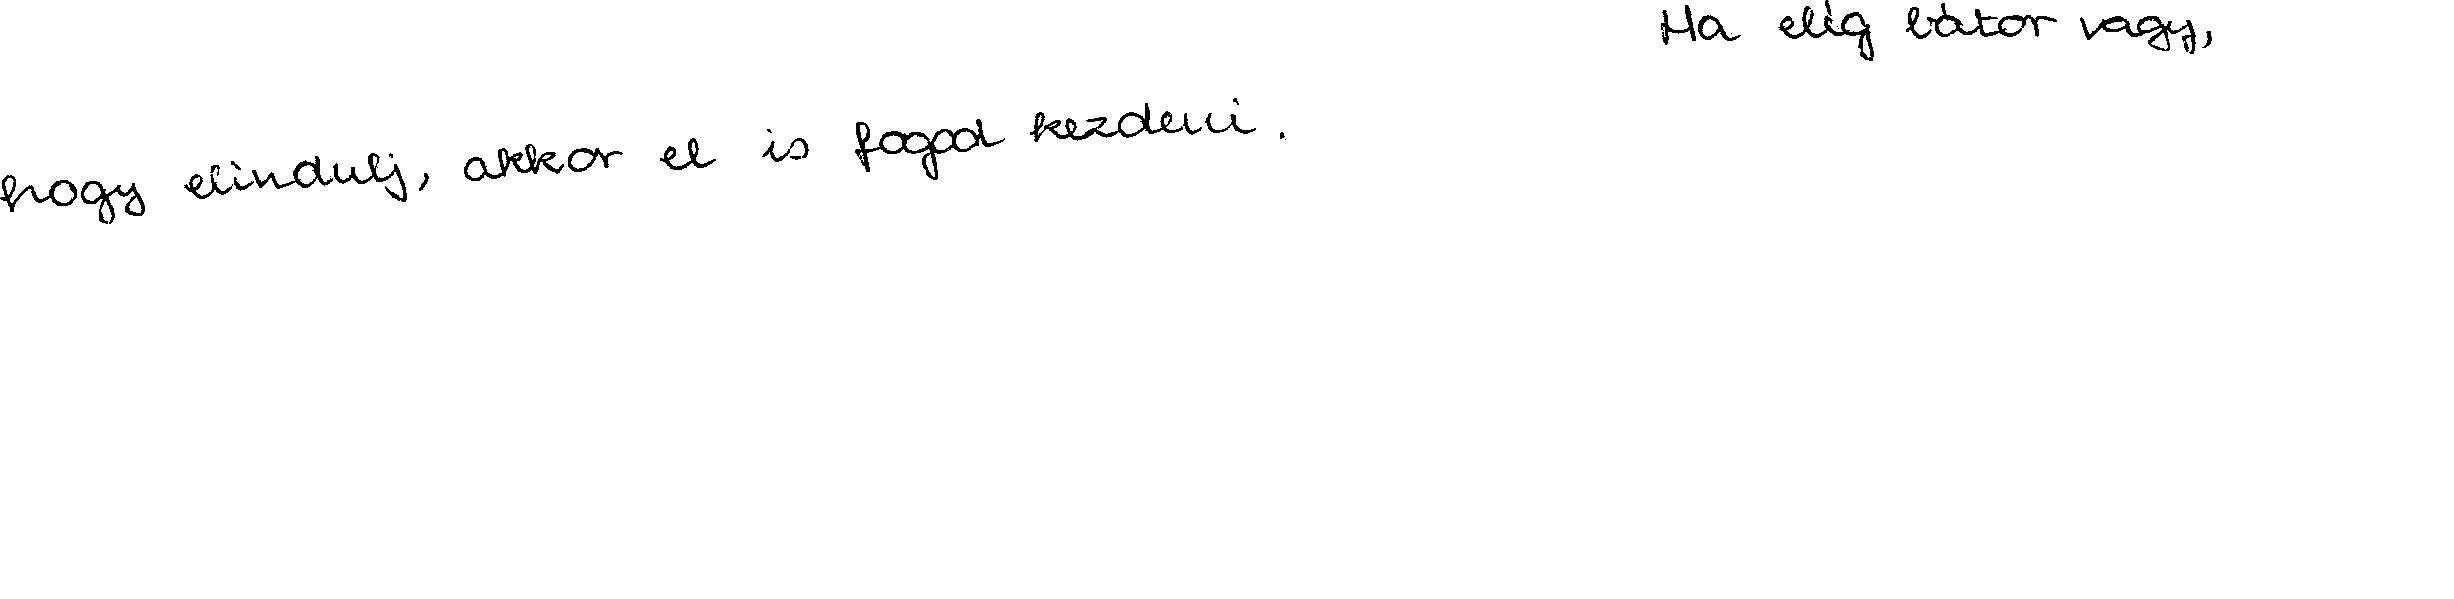 Ha elég bátor vagy,
hogy elindulj, akkor el is fogod kezdeni.